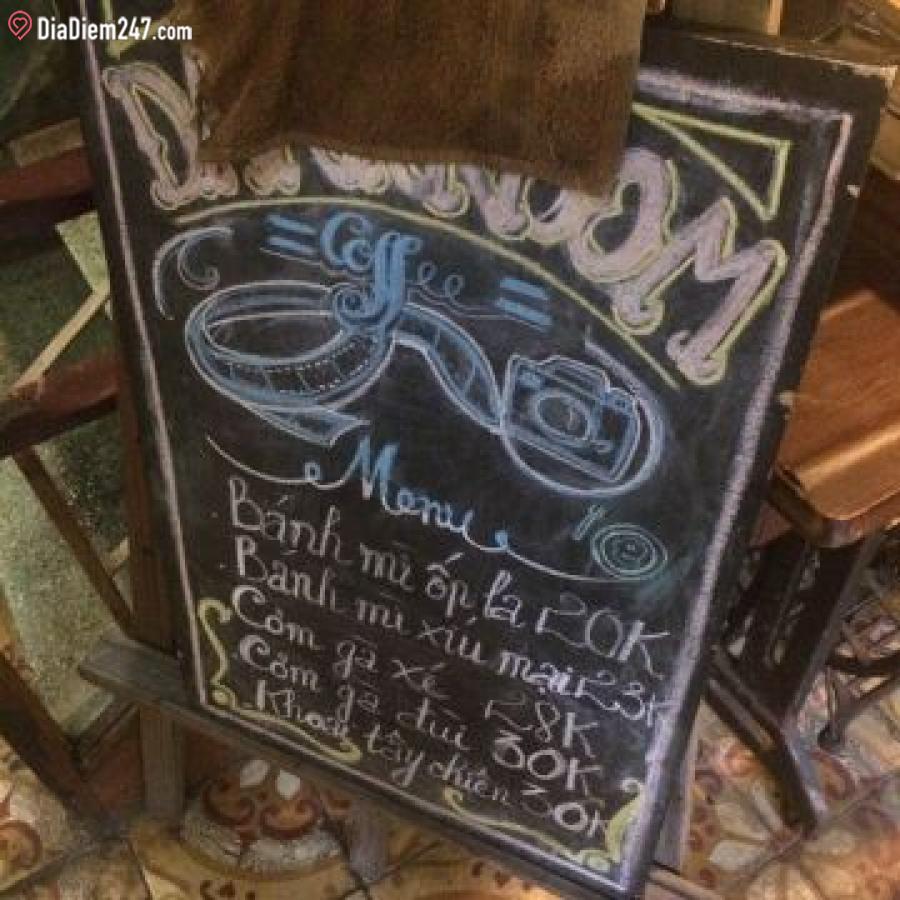 DiaDiem247.com
Coffee
Menu
Bánh mì ốp la 20K
Bánh mì xíu mại 23K
Cơm gà xé 28K
Cơm gà đùi 30K
Khoai tây chiên 30K